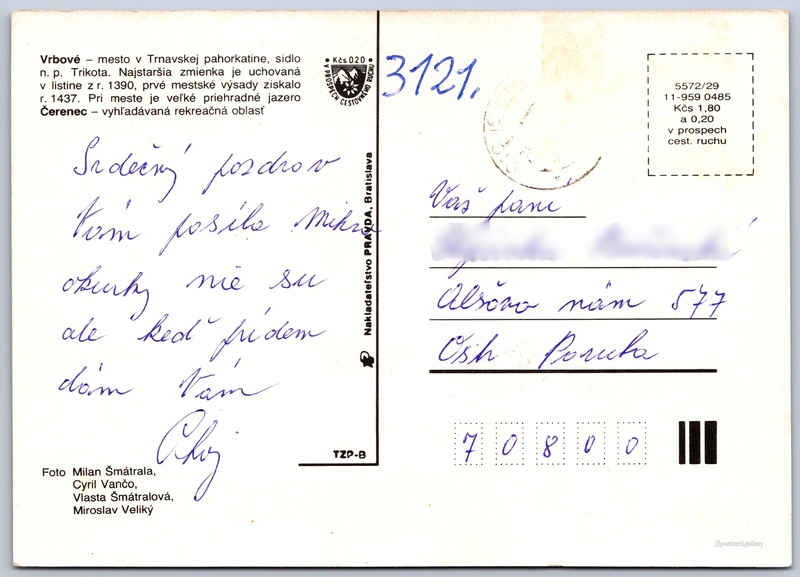 Vrbové – mesto v Trnavskej pahorkatine, sídlo
n. p. Trikota. Najstaršia zmienka je uchovaná
v listine z r. 1390, prvé mestské výsady získalo
r. 1437. Pri meste je veľké priehradné jazero
Čerenec – vyhľadávaná rekreačná oblasť
Kčs 0,20
V PROSPECH CESTOVNÉHO RUCHU
3121.
5572/29
11-959 0485
Kčs 1,80
a 0,20
v prospech
cest. ruchu
Srdečný pozdrav
Vám posíla Mirka
okurky nie su
ale keď prídem
dám Vám
Ahoj
Nakladateľstvo PRAVDA, Bratislava
TZP-B
Foto Milan Šmátrala,
Cyril Vančo,
Vlasta Šmátralová,
Miroslav Veliký
Vaš pani
Alšovo nám 577
Ostr Poruba
70800